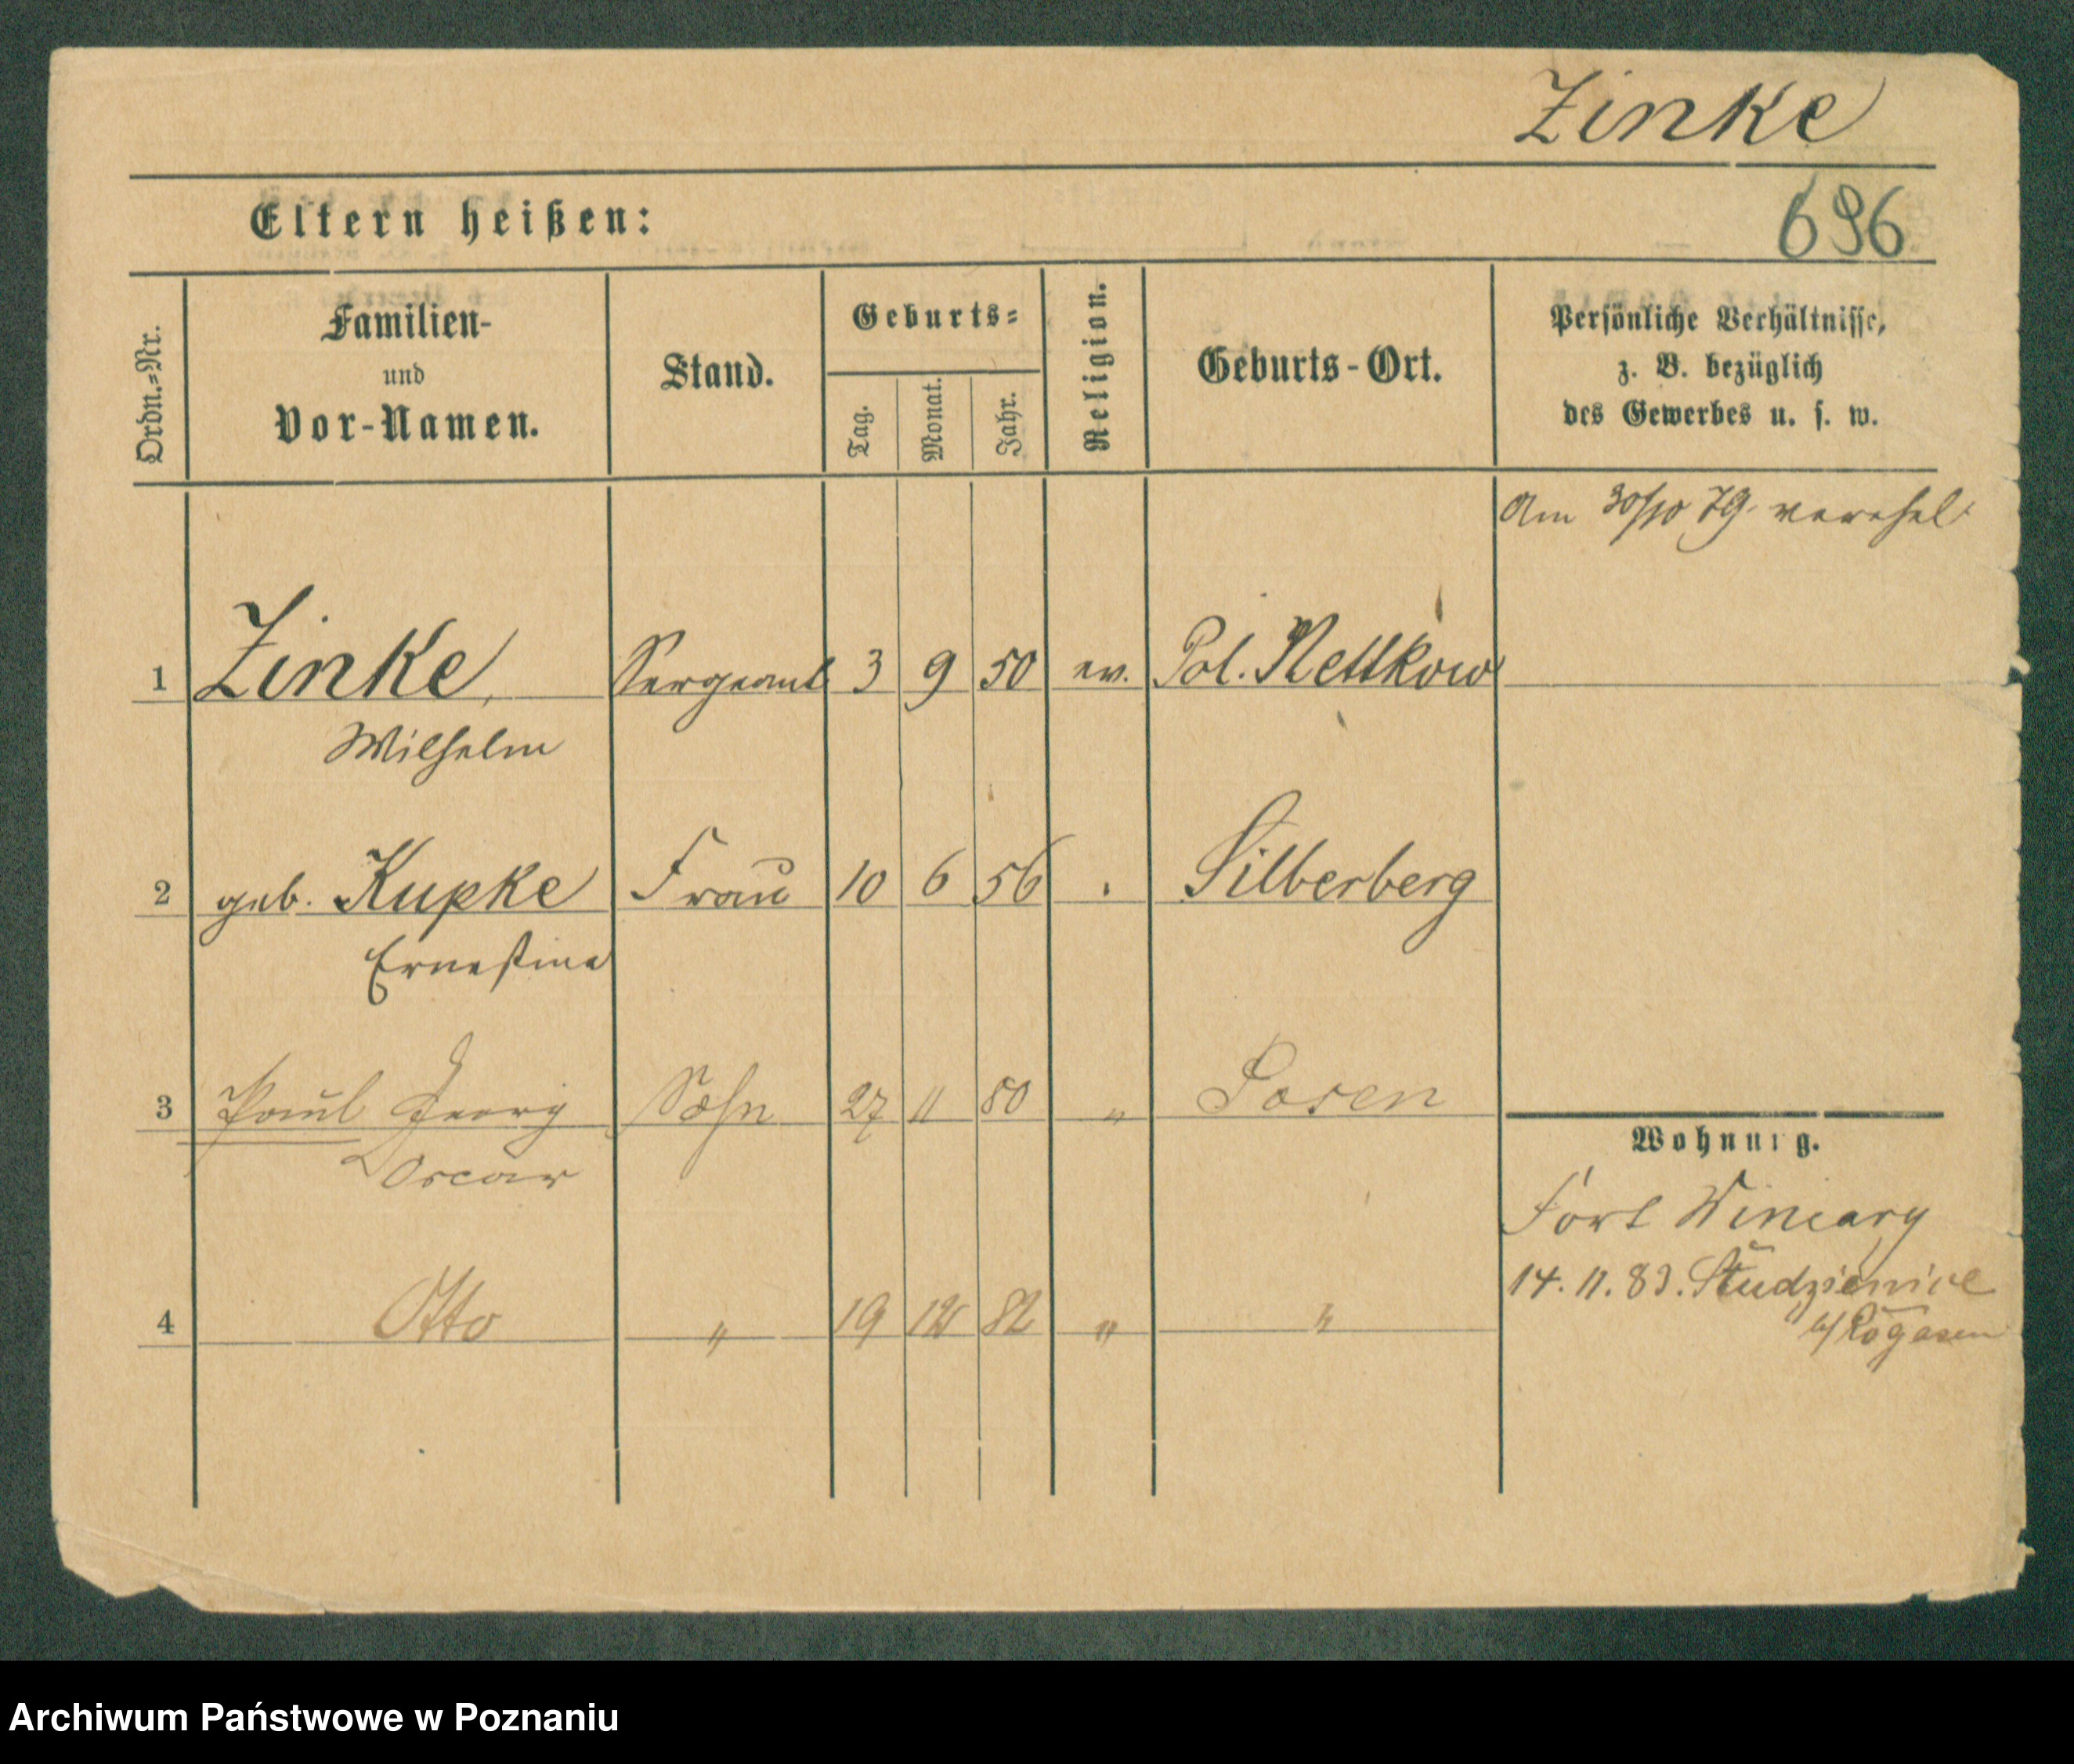 Zinke
Eltern heißen:
696
Ordn.=Nr.
Familien-
und
Vor-Namen.
Stand.
Geburts=
Tag.
Monat.
Jahr.
Religion.
Geburts-Ort.
Persönliche Verhältnisse,
z. B. bezüglich
des Gewerbes u. s. w.
Am 30/10 79. verehel.
1 Zinke, Sergeant 3 9 50 ev. Pol. Nettkow
Wilhelm
2 geb. Kupke Frau 10 6 56 " Silberberg
Ernestine
3 Paul Georg Sohn 27 11 80 " Posen
Oscar
Wohnung.
Fort Winiary
14. 11. 83. Studzienice
b/ Rogasen
4 Otto " 19 12 82 " "
Archiwum Państwowe w Poznaniu